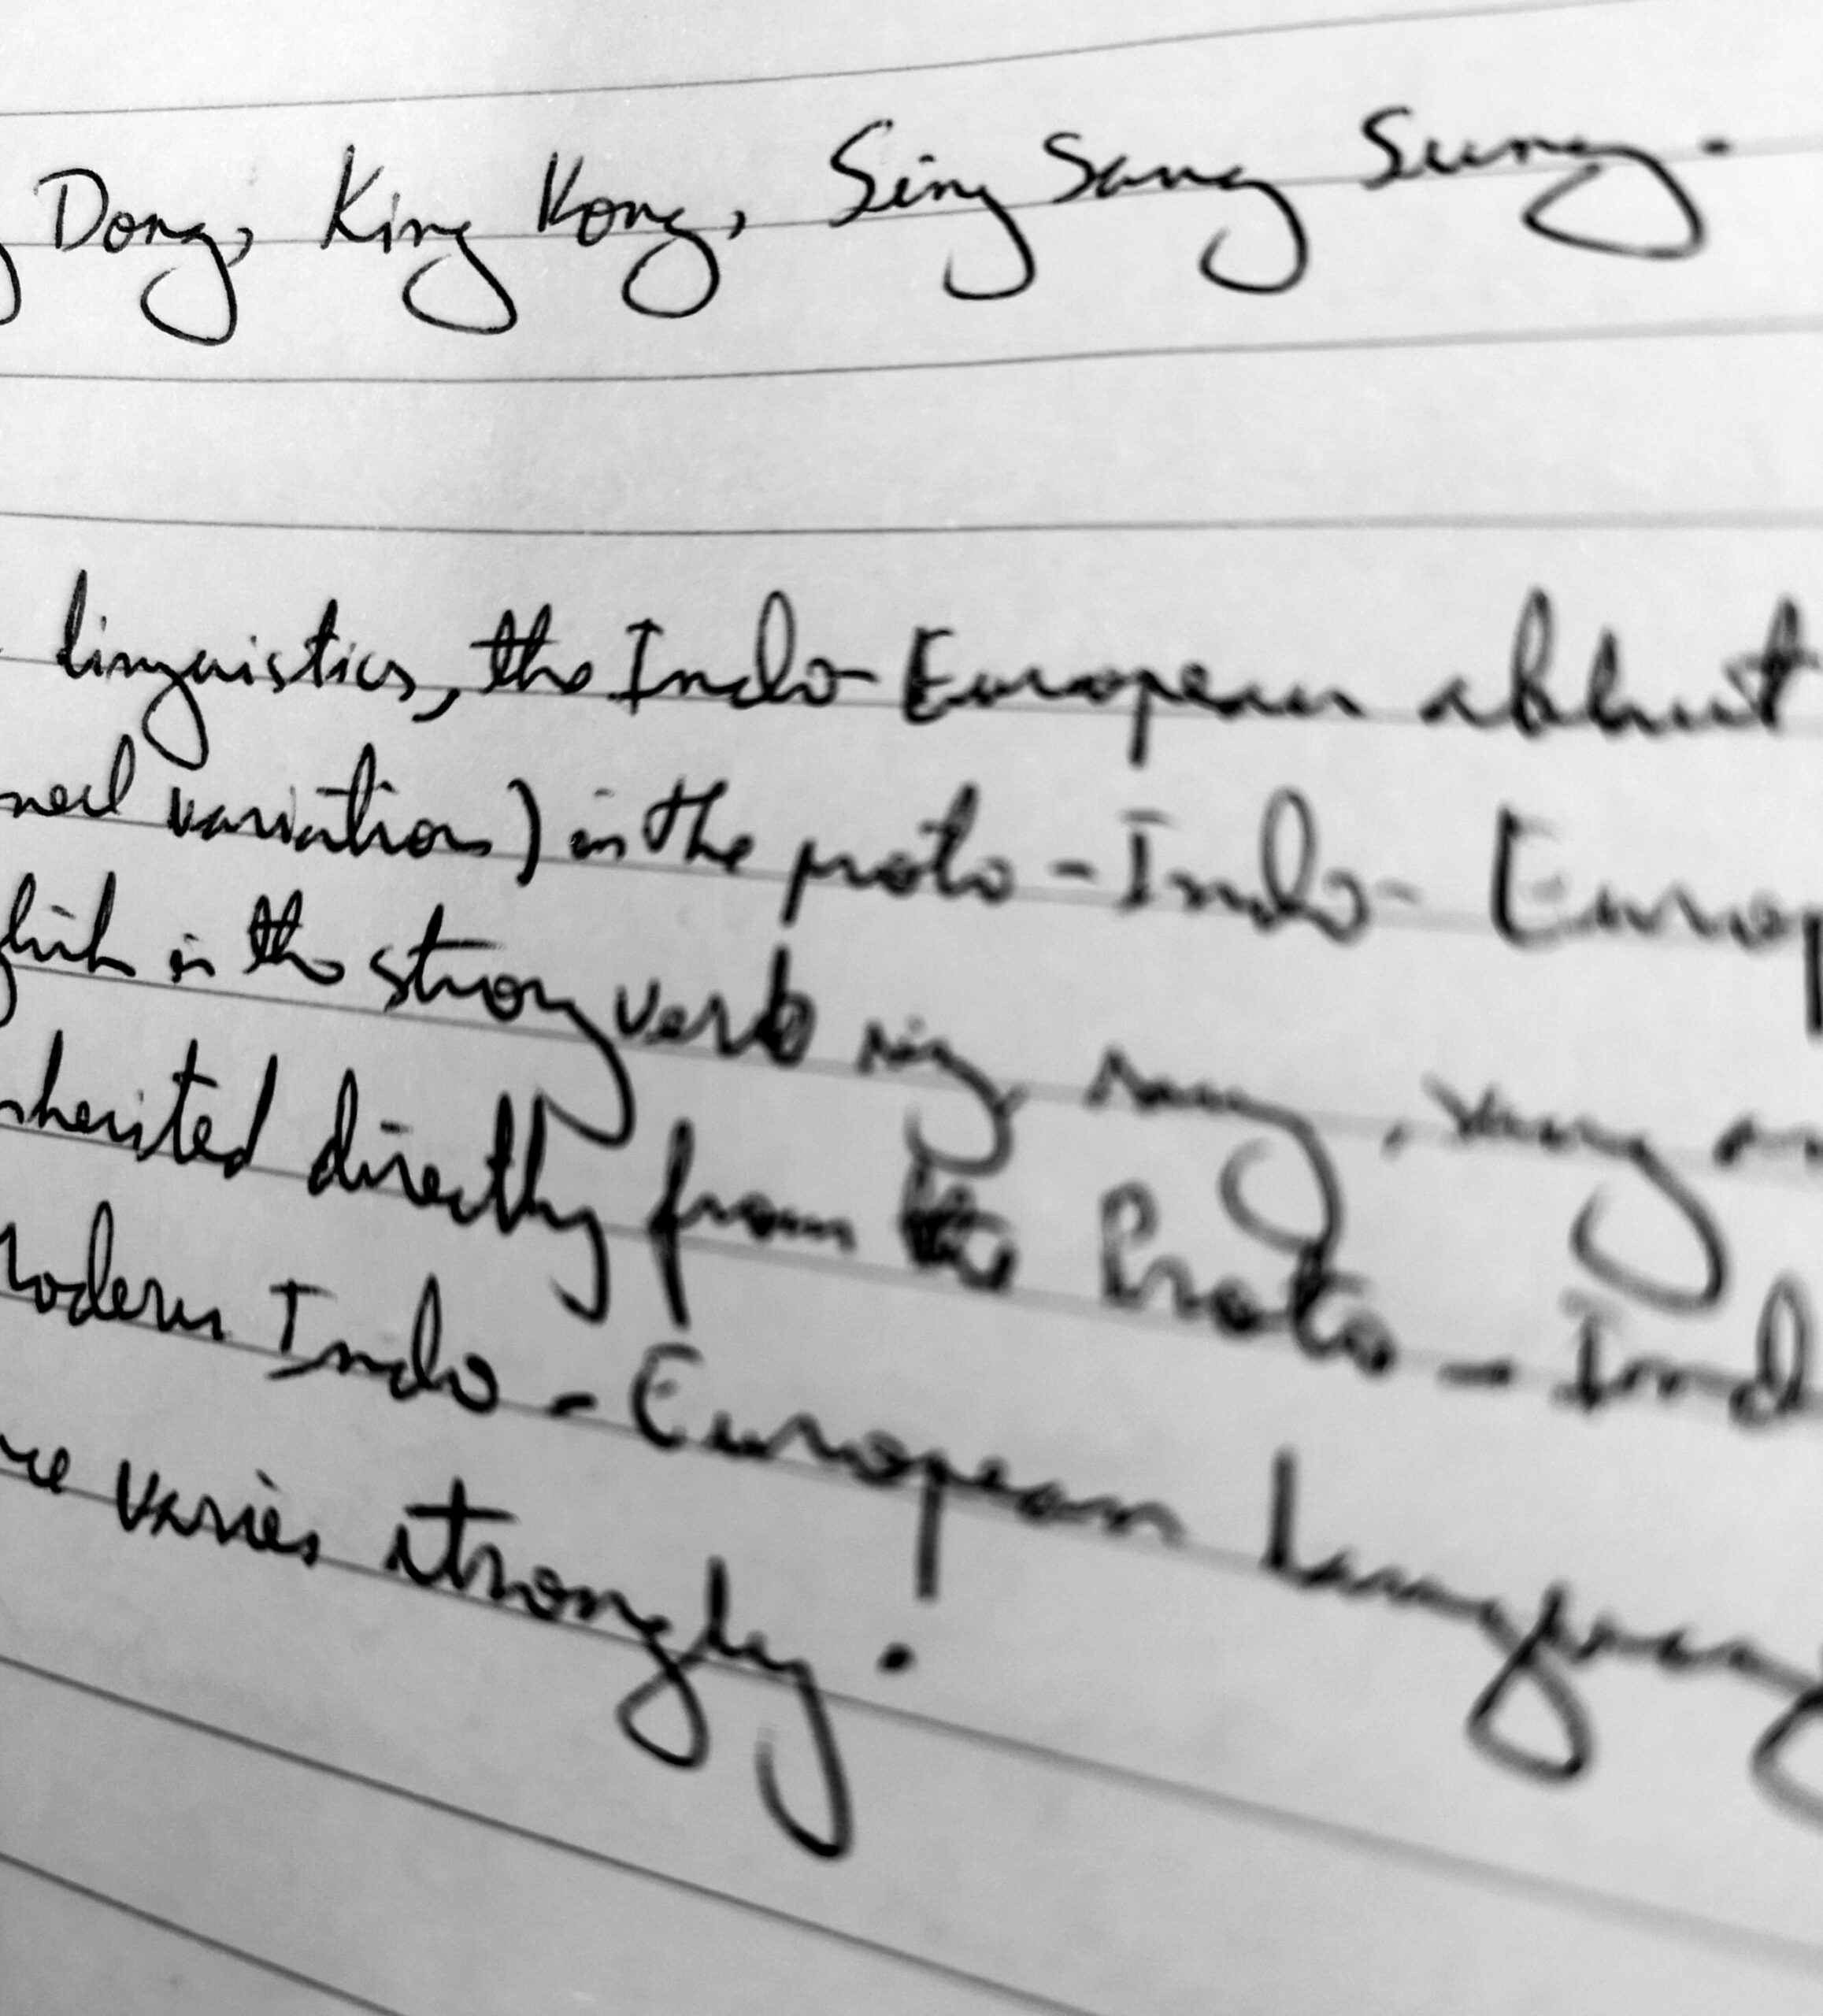 Dong, King Kong, Sing Sang Sung.
linguistics, the Indo-European ablaut
variation) in the proto-Indo-Europ
in the strong verb sing, sang, sung
nherited directly from the Proto-Ind
Modern Indo-European languag
varies strongly.